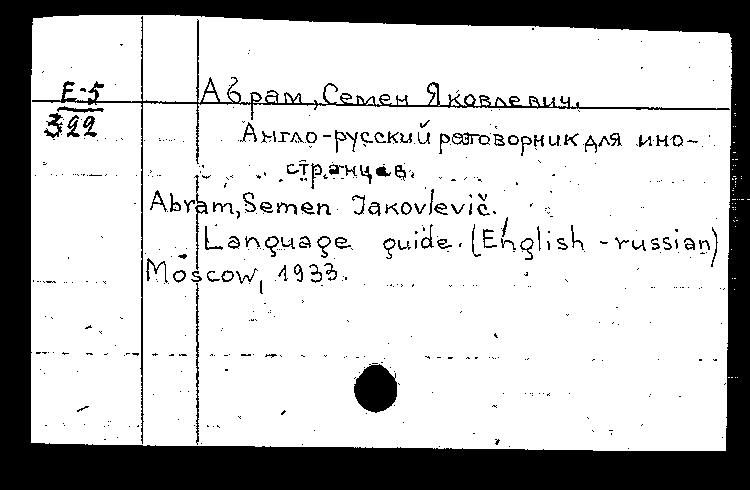 E-5
322
Абрам, Семен Яковлевич.
Англо-русский разговорник для ино-
странцев.
Abram, Semen Jakovlevič.
Language guide. (English - russian)
Moscow, 1933.